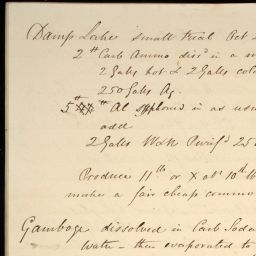 Damp Lake small trial Oct
2 lb Carb Ammo diss'd in a
2 Galls hot & 2 Galls cold
250 Galls Aq.
5 lb Al in as usu
add
2 Galls Purif'd 25
Produce 11 lb or
make a fair cheap common
Gamboge dissolved in Carb Soda
Water – then evaporated to